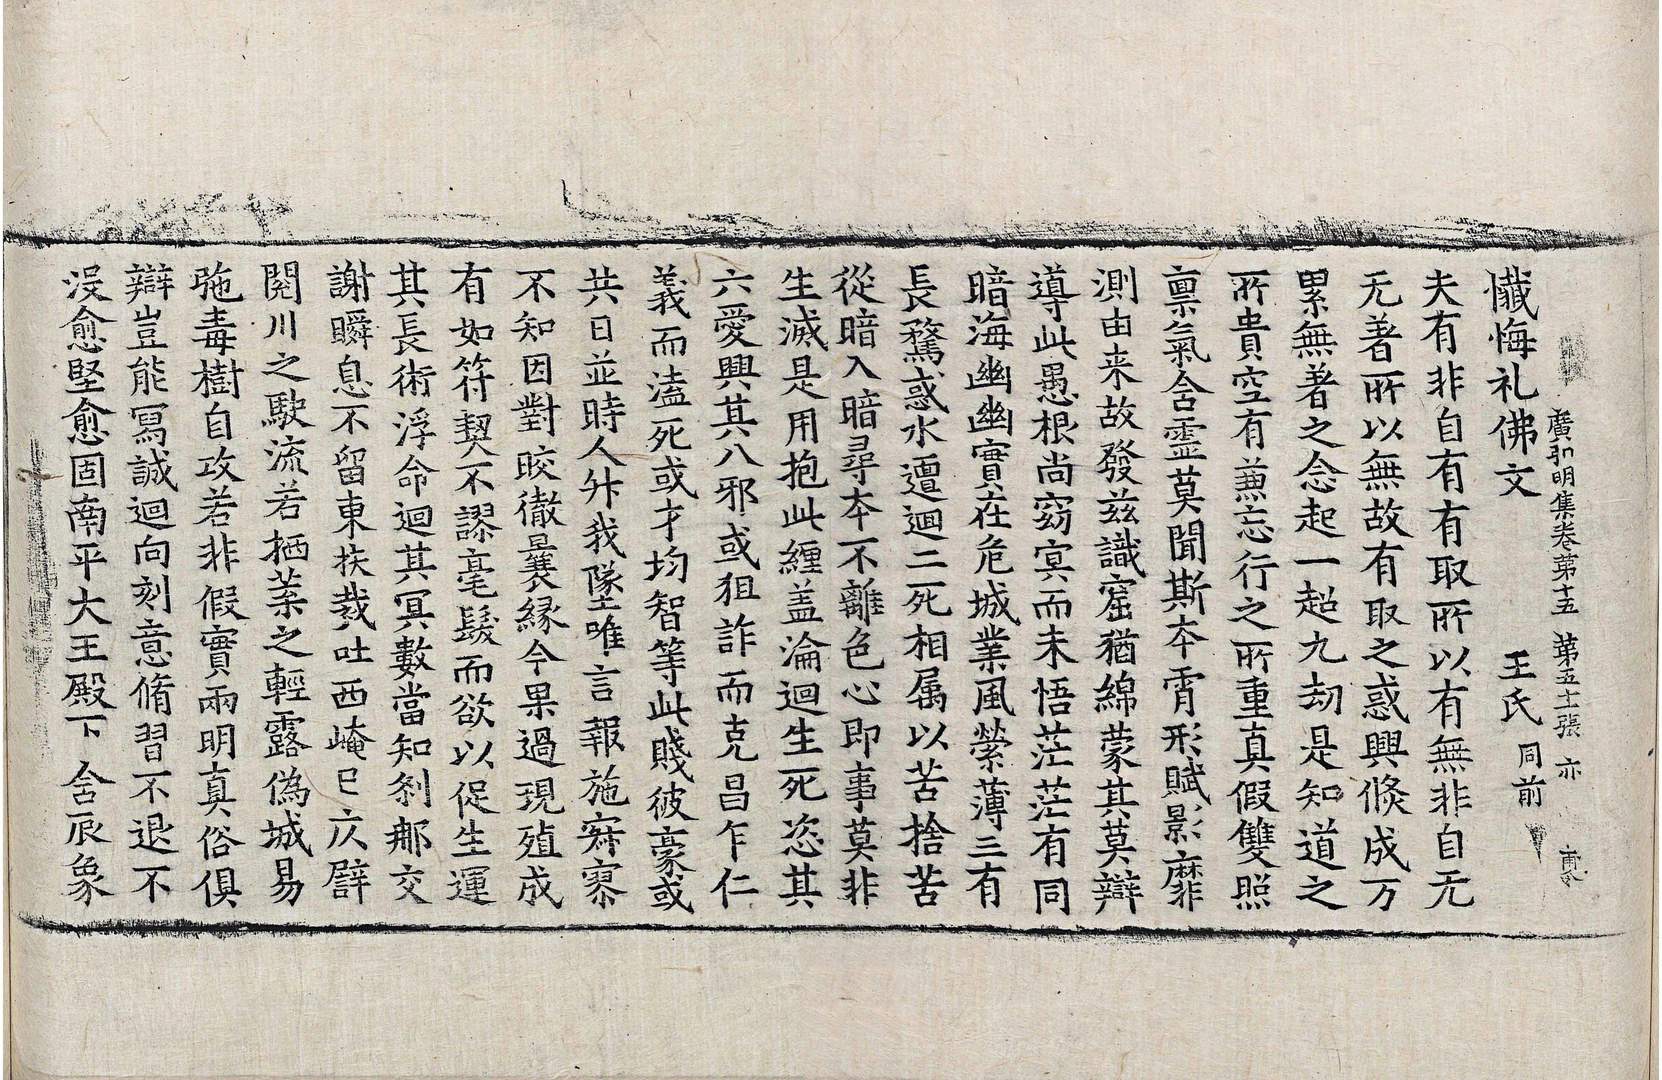 廣弘明集卷第十五 第五十張 亦
懺悔礼佛文 王氏 同前
夫有非自有有取所以有無非自无
无著所以無故有取之惑興倏成万
累無著之念起一超九劫是知道之
所貴空有兼忘行之所重真假雙照
禀氣含霊莫聞斯夲霄形賦影靡
測由来故發兹識窟猶綿蒙其莫辯
導此愚根尚窈冥而未悟茫茫有同
暗海幽幽實在危城業風縈薄三有
長騖惑水邅迴二死相属以苦捨苦
從暗入暗尋夲不離色心即事莫非
生滅是用抱此纏盖淪迴生死恣其
六愛興其八邪或狙詐而克昌乍仁
義而溘死或才均智等此賤彼豪或
共日並時人升我墜唯言報施寂寥
不知因對皎徹曩縁今果過現殖成
有如符契不謬毫髮而欲以促生運
其長術浮命迴其冥數當知剎那交
謝瞬息不留東扶裁吐西崦已仄譬
閱川之駛流若栖葉之輕露偽城易
弛毒樹自攻若非假實兩明真俗俱
辯豈能寫誠迴向刻意脩習不退不
没愈堅愈固南平大王殿下 含辰象